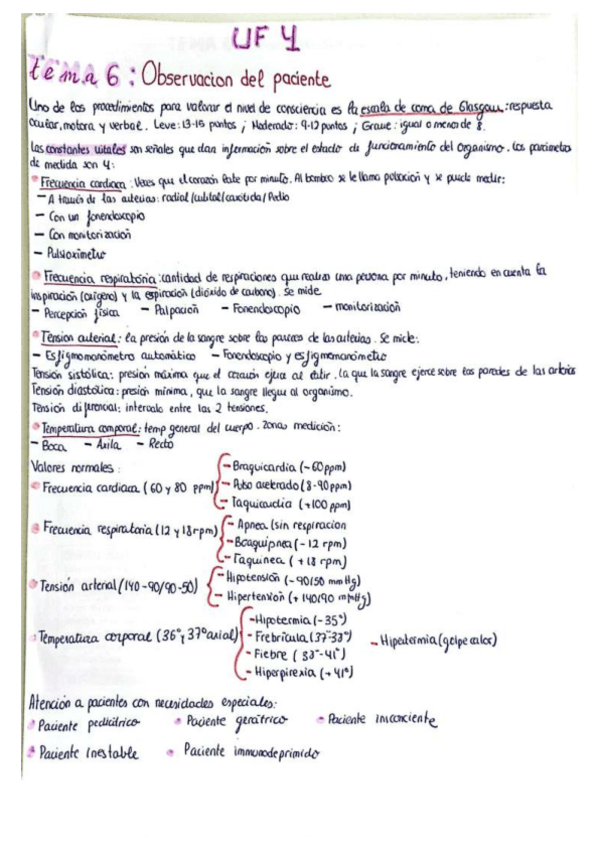 UF 4
tema 6: Observacion del paciente
Uno de los procedimientos para valorar el nivel de consciencia es la escala de coma de Glasgow: respuesta
ocular, motora y verbal. Leve: 13-15 puntos ; Moderado: 9-12 puntos ; Grave: igual o menos de 8.
Las constantes vitales son señales que dan información sobre el estado de funcionamiento del organismo. Los parámetros
de medida son 4:
Frecuencia cardiaca: Veces que el corazón late por minuto. Al bombeo se le llama pulsación y se puede medir:
- A través de las arterias: radial/cubital/carotida/Pedio
- Con un fonendoscopio
- Con monitorización
- Pulsioximetro
Frecuencia respiratória: cantidad de respiraciones que realiza una persona por minuto, teniendo en cuenta la
inspiración (oxígeno) y la espiración (dióxido de carbono). Se mide
- Percepción física - Palpación - Fonendoscopio - monitorización
Tension arterial: la presión de la sangre sobre las paredes de las arterias. Se mide:
- Esfigmomanómetro automático - Fonendoscopio y esfigmomanómetro
Tensión sistólica: presión máxima que el corazón ejerce al latir. La que la sangre ejerce sobre las paredes de las arterias
Tensión diastólica: presión mínima, que la sangre llegue al organismo.
Tensión diferencial: intervalo entre las 2 tensiones.
Temperatura corporal: temp general del cuerpo. Zonas medición:
- Boca - Axila - Recto
Valores normales:
Frecuencia cardiaca (60 y 80 ppm)
- Braquicardia (-60ppm)
- Pulso acelerado (8-90ppm)
- Taquicardia (+100 ppm)
Frecuencia respiratoria (12 y 18rpm)
- Apnea (sin respiracion
- Bcaquipnea (-12 rpm)
- Taquinea (+18 rpm)
Tensión arterial (140-90/90-50)
- Hipotensión (-90/50 mmHg)
- Hipertension (+140/90 mmHg)
Temperatura corporal (36º y 37º axial)
- Hipotermia (-35º)
- Frebricula (37-38º)
- Fiebre (38º-41º)
- Hiperpirexia (+41º)
- Hipertermia (golpe calor)
Atención a pacientes con necesidades especiales:
Paciente pediátrico Paciente geriátrico Paciente insconciente
Paciente Inestable Paciente inmunodeprimido